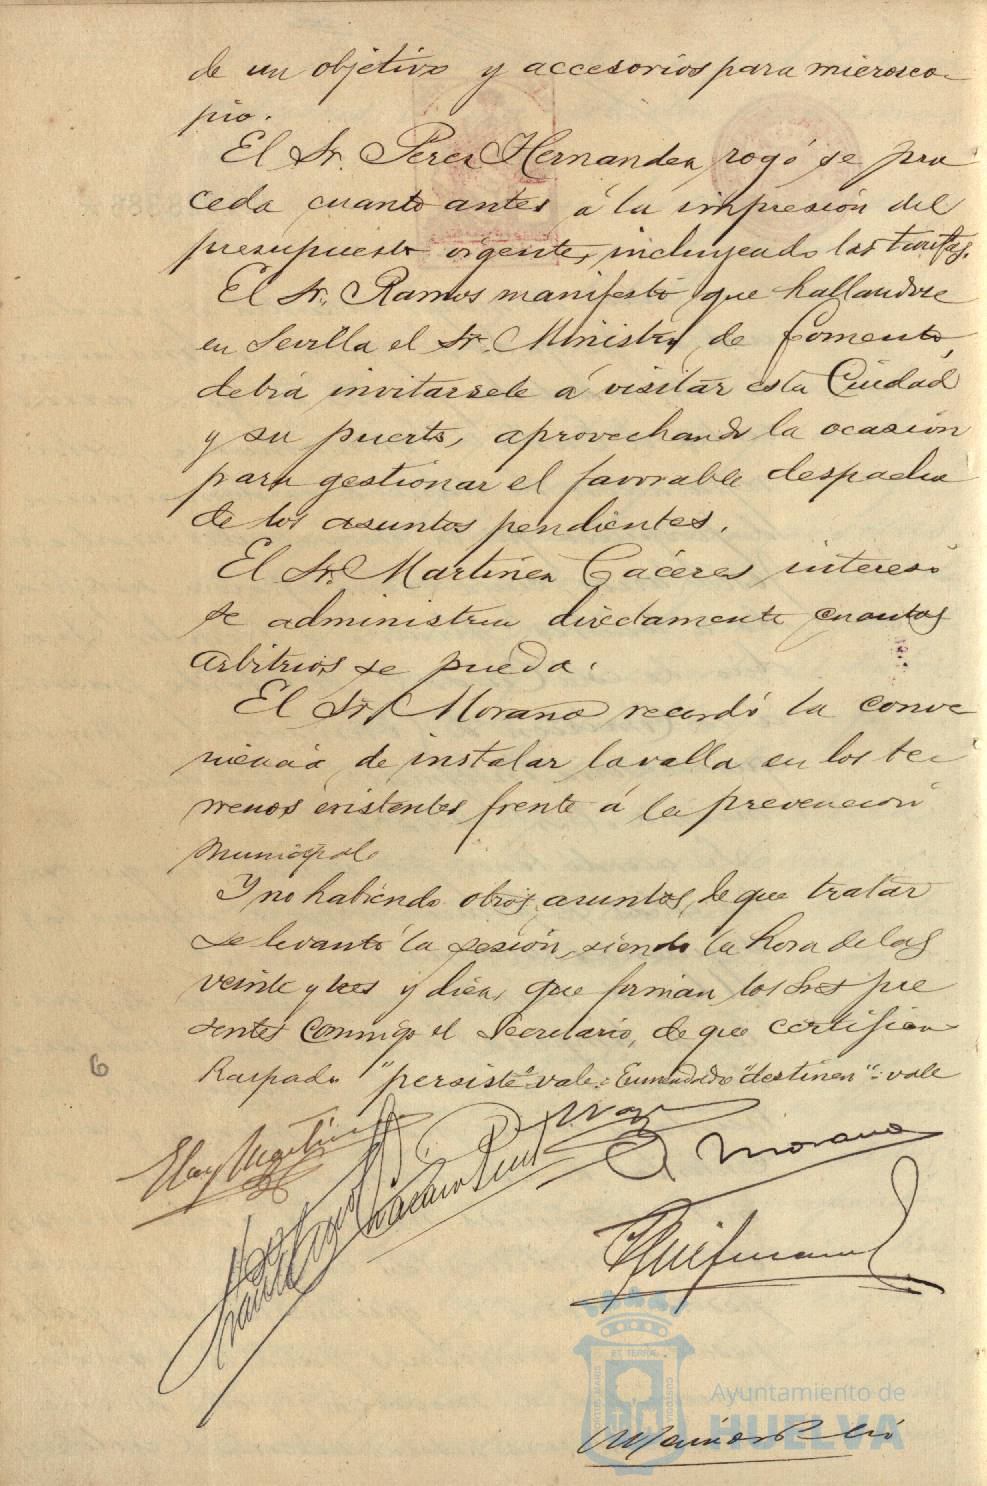 de un objetivo y accesorios para microsco-
pio.
El Sr. Perez Hernandez, rogó se pro
ceda cuanto antes á la impresión del
presupuesto vigente, incluyendo las tarifas.
El Sr. Ramos manifestó que hallandose
en Sevilla el Sr. Ministro de Fomento,
debia invitarsele á visitar esta Ciudad
y su puerto, aprovechando la ocasión
para gestionar el favorable despacho
de los asuntos pendientes.
El Sr. Martinez Cáceres interesó
se administren directamente cuantos
arbitrios se pueda.
El Sr. Morano recordó la conve
niencia de instalar la valla en los te-
rrenos existentes frente á la prevención
municipal.
Y no habiendo otros asuntos de que tratar
se levantó la sesión, siendo la hora de las
veinte y tres y diez, que firman los Sres pre
sentes conmigo el Secretario, de que certifico
Raspado "persiste" vale: Enmendado "destinen": vale
6
Eloy Martin
A. Morano
Ayuntamiento de
HUELVA